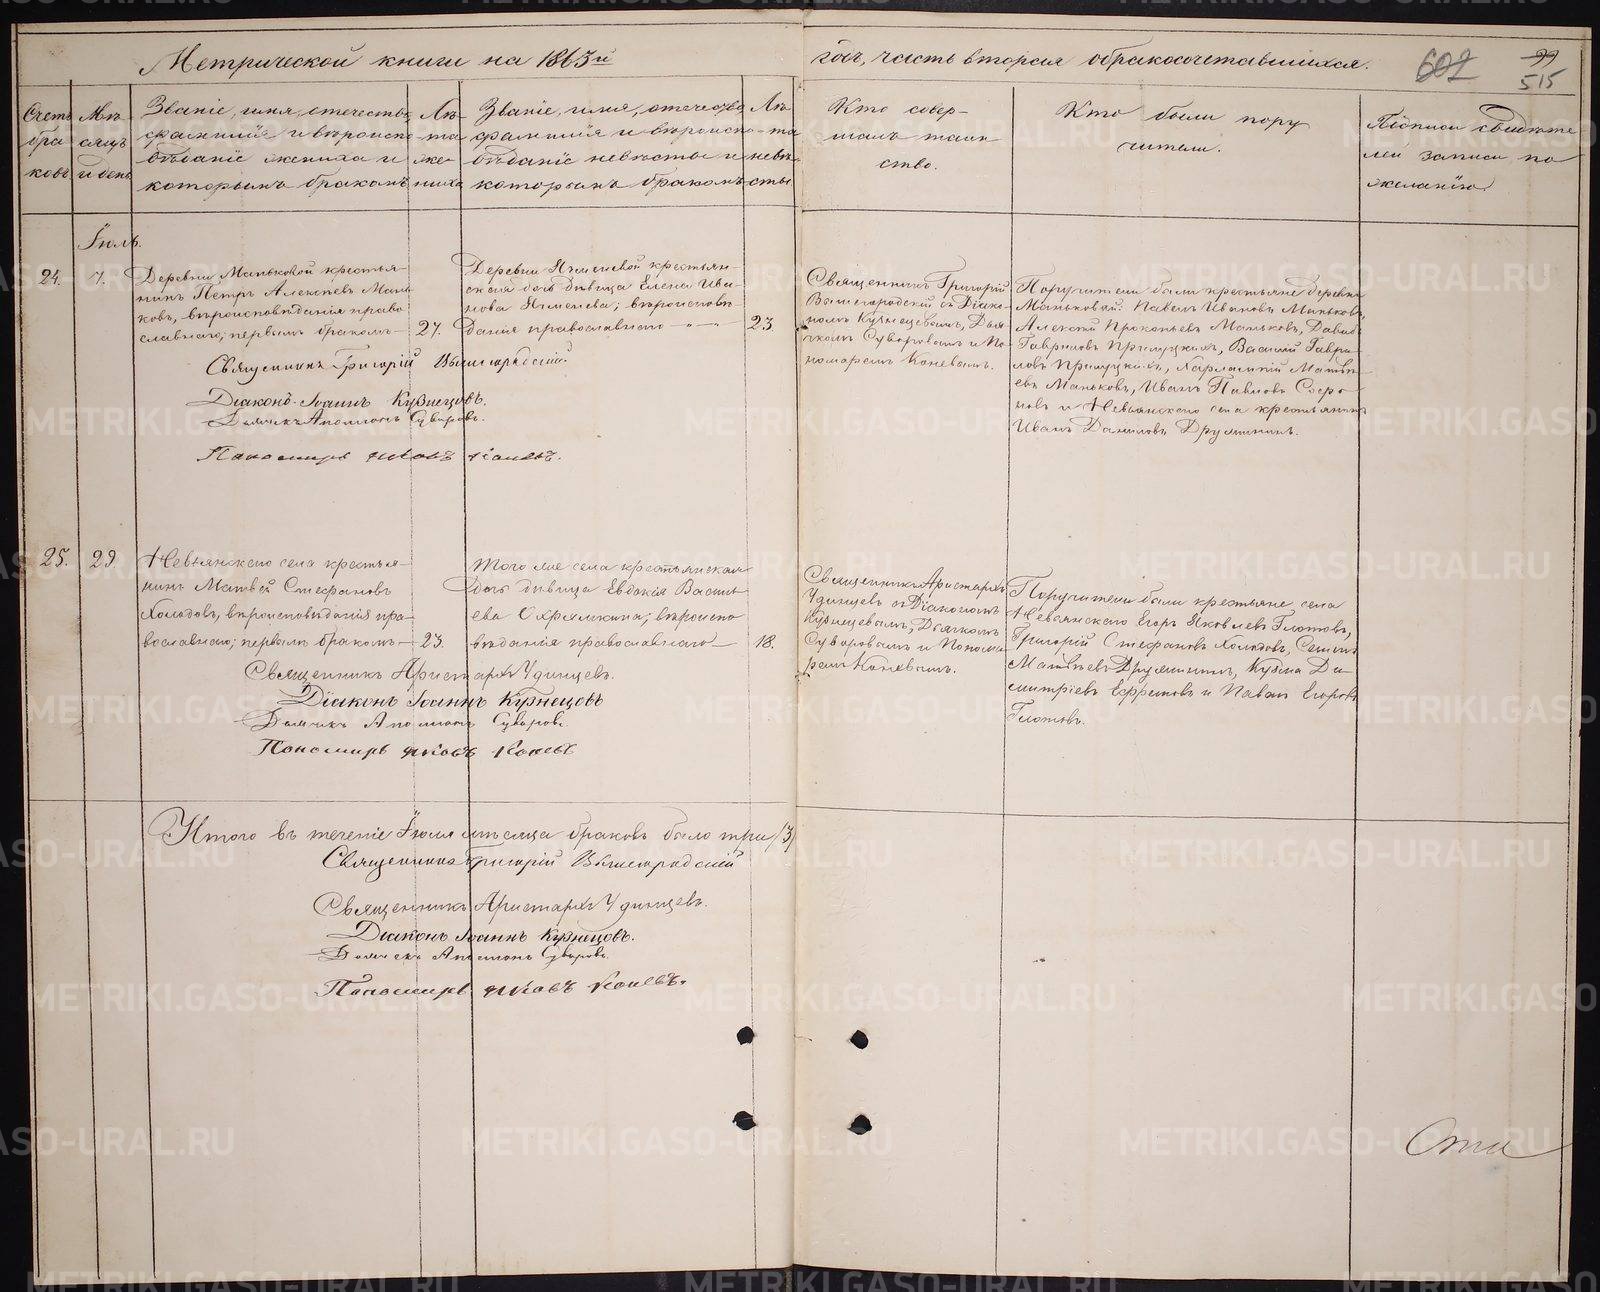 Метрической книги на 1863й
годъ, часть вторая о бракосочетавшихся.
602
99
515
Счетъ
бра
ковъ
Мѣ-
сяцъ
и день
Званіе, имя, отечество,
фамилія и вѣроиспо
вѣданіе жениха и
которымъ бракомъ
Лѣ-
та
же-
ниха
Званіе, имя, отечество,
фамилія и вѣроиспо-
вѣданіе невѣсты и
которымъ бракомъ
Лѣ-
та
невѣ-
сты
Кто совер-
шалъ таин
ство.
Кто были пору
чители.
Подписи свидѣте
лей записи по
желанію
Іюль.
24.
7.
Деревни Маньковой крестья-
нинъ Петръ Алексѣевъ Мань
ковъ, вѣроисповѣданія право
славнаго, первымъ бракомъ
27.
Деревни Ячменевой крестьян-
ская дочь дѣвица Елена Ива
нова Ячменева; вѣроисповѣ
данія православнаго
23.
Священникъ Григорій
Вышегородскій съ Діако-
номъ Кузнецовымъ, Дья
чкомъ Суворовымъ и По
номаремъ Коневымъ.
Поручители были крестьяне деревни
Маньковой: Павелъ Ивановъ Маньковъ,
Алексѣй Прокопьевъ Маньковъ, Давидъ
Гавриловъ Примуцкихъ, Василій Гаври
ловъ Примуцкихъ, Харлампій Матвѣ
евъ Маньковъ, Иванъ Павловъ Софро
новъ и Невьянскаго села крестьянинъ
Иванъ Даниловъ Дружининъ.
Священникъ Григорій Вышегородскій.
Діаконъ Іоаннъ Кузнецовъ.
Дьячекъ Аполлонъ Суворовъ.
Пономарь Яковъ Коневъ.
25.
29.
Невьянскаго села крестья-
нинъ Матвей Стефановъ
Холодовъ, вѣроисповѣданія пра-
вославнаго; первымъ бракомъ
23.
Того же села крестьянская
дочь дѣвица Евдокія Василь
ева Охрямкина; вѣроиспо
вѣданія православнаго
18.
Священникъ Аристархъ
Удинцевъ съ Діакономъ
Кузнецовымъ, Дьячкомъ
Суворовымъ и Понома
ремъ Коневымъ.
Поручители были крестьяне села
Невьянскаго Егоръ Яковлевъ Глотовъ,
Григорій Стефановъ Холодовъ, Семенъ
Матвѣевъ Дружининъ, Кузма Ди-
митріевъ Ефремовъ и Павелъ Егоровъ
Глотовъ.
Священникъ Аристархъ Удинцевъ.
Діаконъ Іоаннъ Кузнецовъ
Дьячекъ Аполлонъ Суворовъ.
Пономарь Яковъ Коневъ
Итого въ теченіе Іюля мѣсяца браковъ было три /3/
Священникъ Григорій Вышегородскій
Священникъ Аристархъ Удинцевъ.
Діаконъ Іоаннъ Кузнецовъ.
Дьячекъ Аполлонъ Суворовъ.
Пономарь Яковъ Коневъ.
METRIKI.GASO-URAL.RU